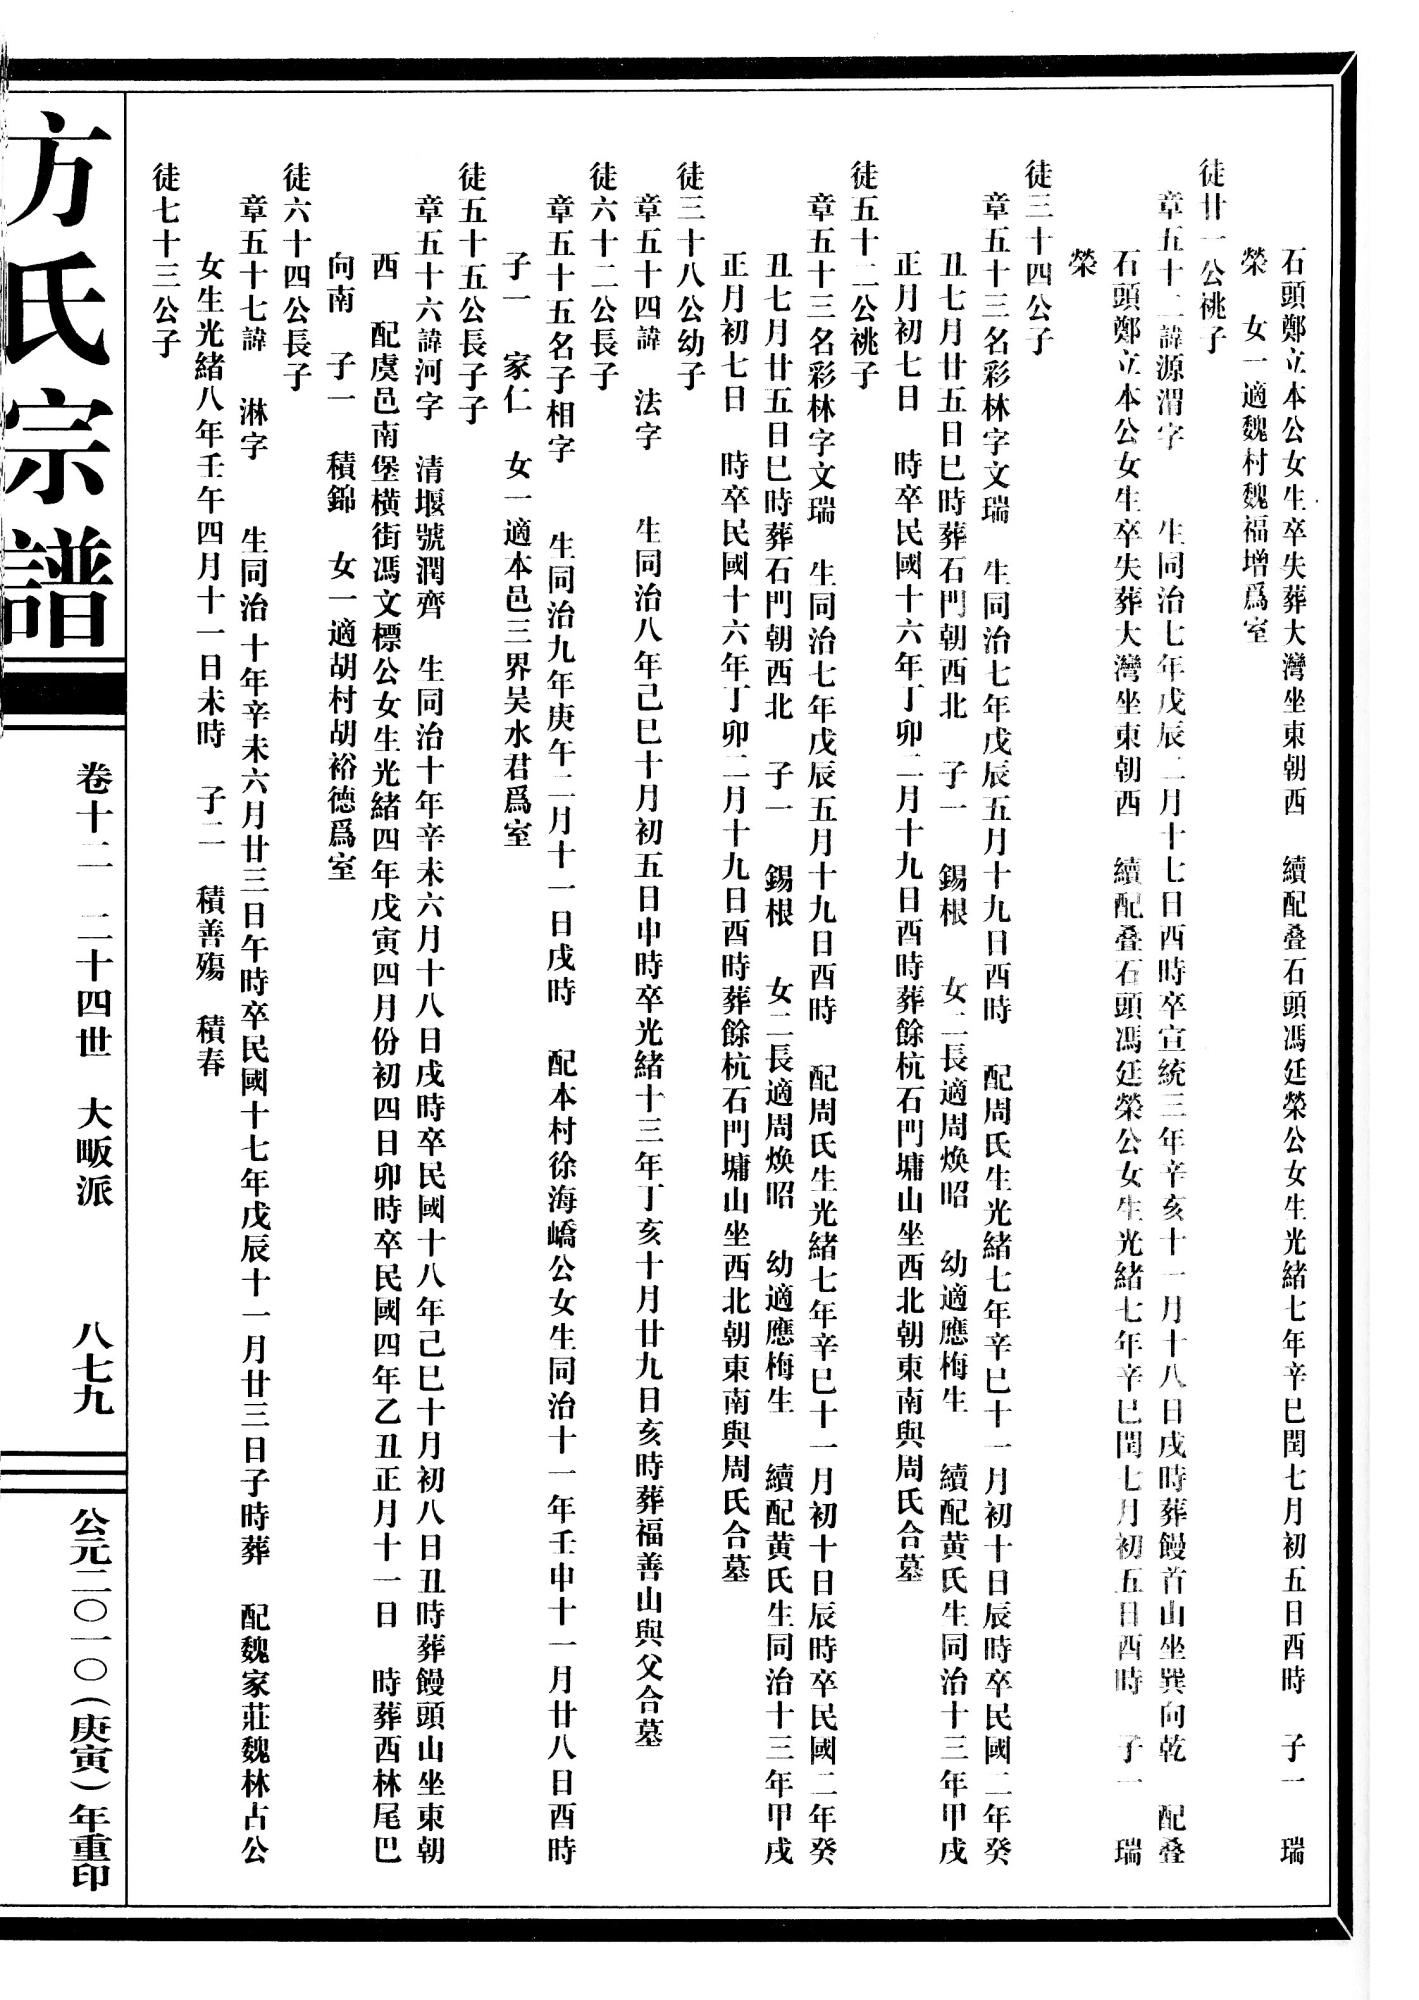 石頭鄭立本公女生卒失葬大灣坐東朝西　續配叠石頭馮廷榮公女生光緒七年辛巳閏七月初五日酉時　子一　瑞
榮　女一適魏村魏福增爲室
徒廿一公祧子
章五十二諱源渭字　生同治七年戊辰二月十七日酉時卒宣統三年辛亥十一月十八日戌時葬饅首山坐巽向乾　配叠
石頭鄭立本公女生卒失葬大灣坐東朝西　續配叠石頭馮廷榮公女生光緒七年辛巳閏七月初五日酉時　子一　瑞
榮
徒三十四公子
章五十三名彩林字文瑞　生同治七年戊辰五月十九日酉時　配周氏生光緒七年辛巳十一月初十日辰時卒民國二年癸
丑七月廿五日巳時葬石門朝西北　子一　錫根　女二長適周焕昭　幼適應梅生　續配黄氏生同治十三年甲戌
正月初七日　時卒民國十六年丁卯二月十九日酉時葬餘杭石門墉山坐西北朝東南與周氏合墓
徒五十二公祧子
章五十三名彩林字文瑞　生同治七年戊辰五月十九日酉時　配周氏生光緒七年辛巳十一月初十日辰時卒民國二年癸
丑七月廿五日巳時葬石門朝西北　子一　錫根　女二長適周焕昭　幼適應梅生　續配黄氏生同治十三年甲戌
正月初七日　時卒民國十六年丁卯二月十九日酉時葬餘杭石門墉山坐西北朝東南與周氏合墓
徒三十八公幼子
章五十四諱　法字　生同治八年己巳十月初五日申時卒光緒十三年丁亥十月廿九日亥時葬福善山與父合墓
徒六十二公長子
章五十五名子相字　生同治九年庚午二月十一日戌時　配本村徐海嶠公女生同治十一年壬申十一月廿八日酉時
子一　家仁　女一適本邑三界吴水君爲室
徒五十五公長子子
章五十六諱河字　清堰號潤齊　生同治十年辛未六月十八日戌時卒民國十八年己巳十月初八日丑時葬饅頭山坐東朝
西　配虞邑南堡横街馮文標公女生光緒四年戊寅四月份初四日卯時卒民國四年乙丑正月十一日　時葬西林尾巴
向南　子一　積錦　女一適胡村胡裕德爲室
徒六十四公長子
章五十七諱　淋字　生同治十年辛未六月廿三日午時卒民國十七年戊辰十一月廿三日子時葬　配魏家莊魏林占公
女生光緒八年壬午四月十一日未時　子二　積善殤　積春
徒七十三公子
方氏宗譜
卷十二　二十四世　大畈派　八七九
公元二〇一〇(庚寅)年重印